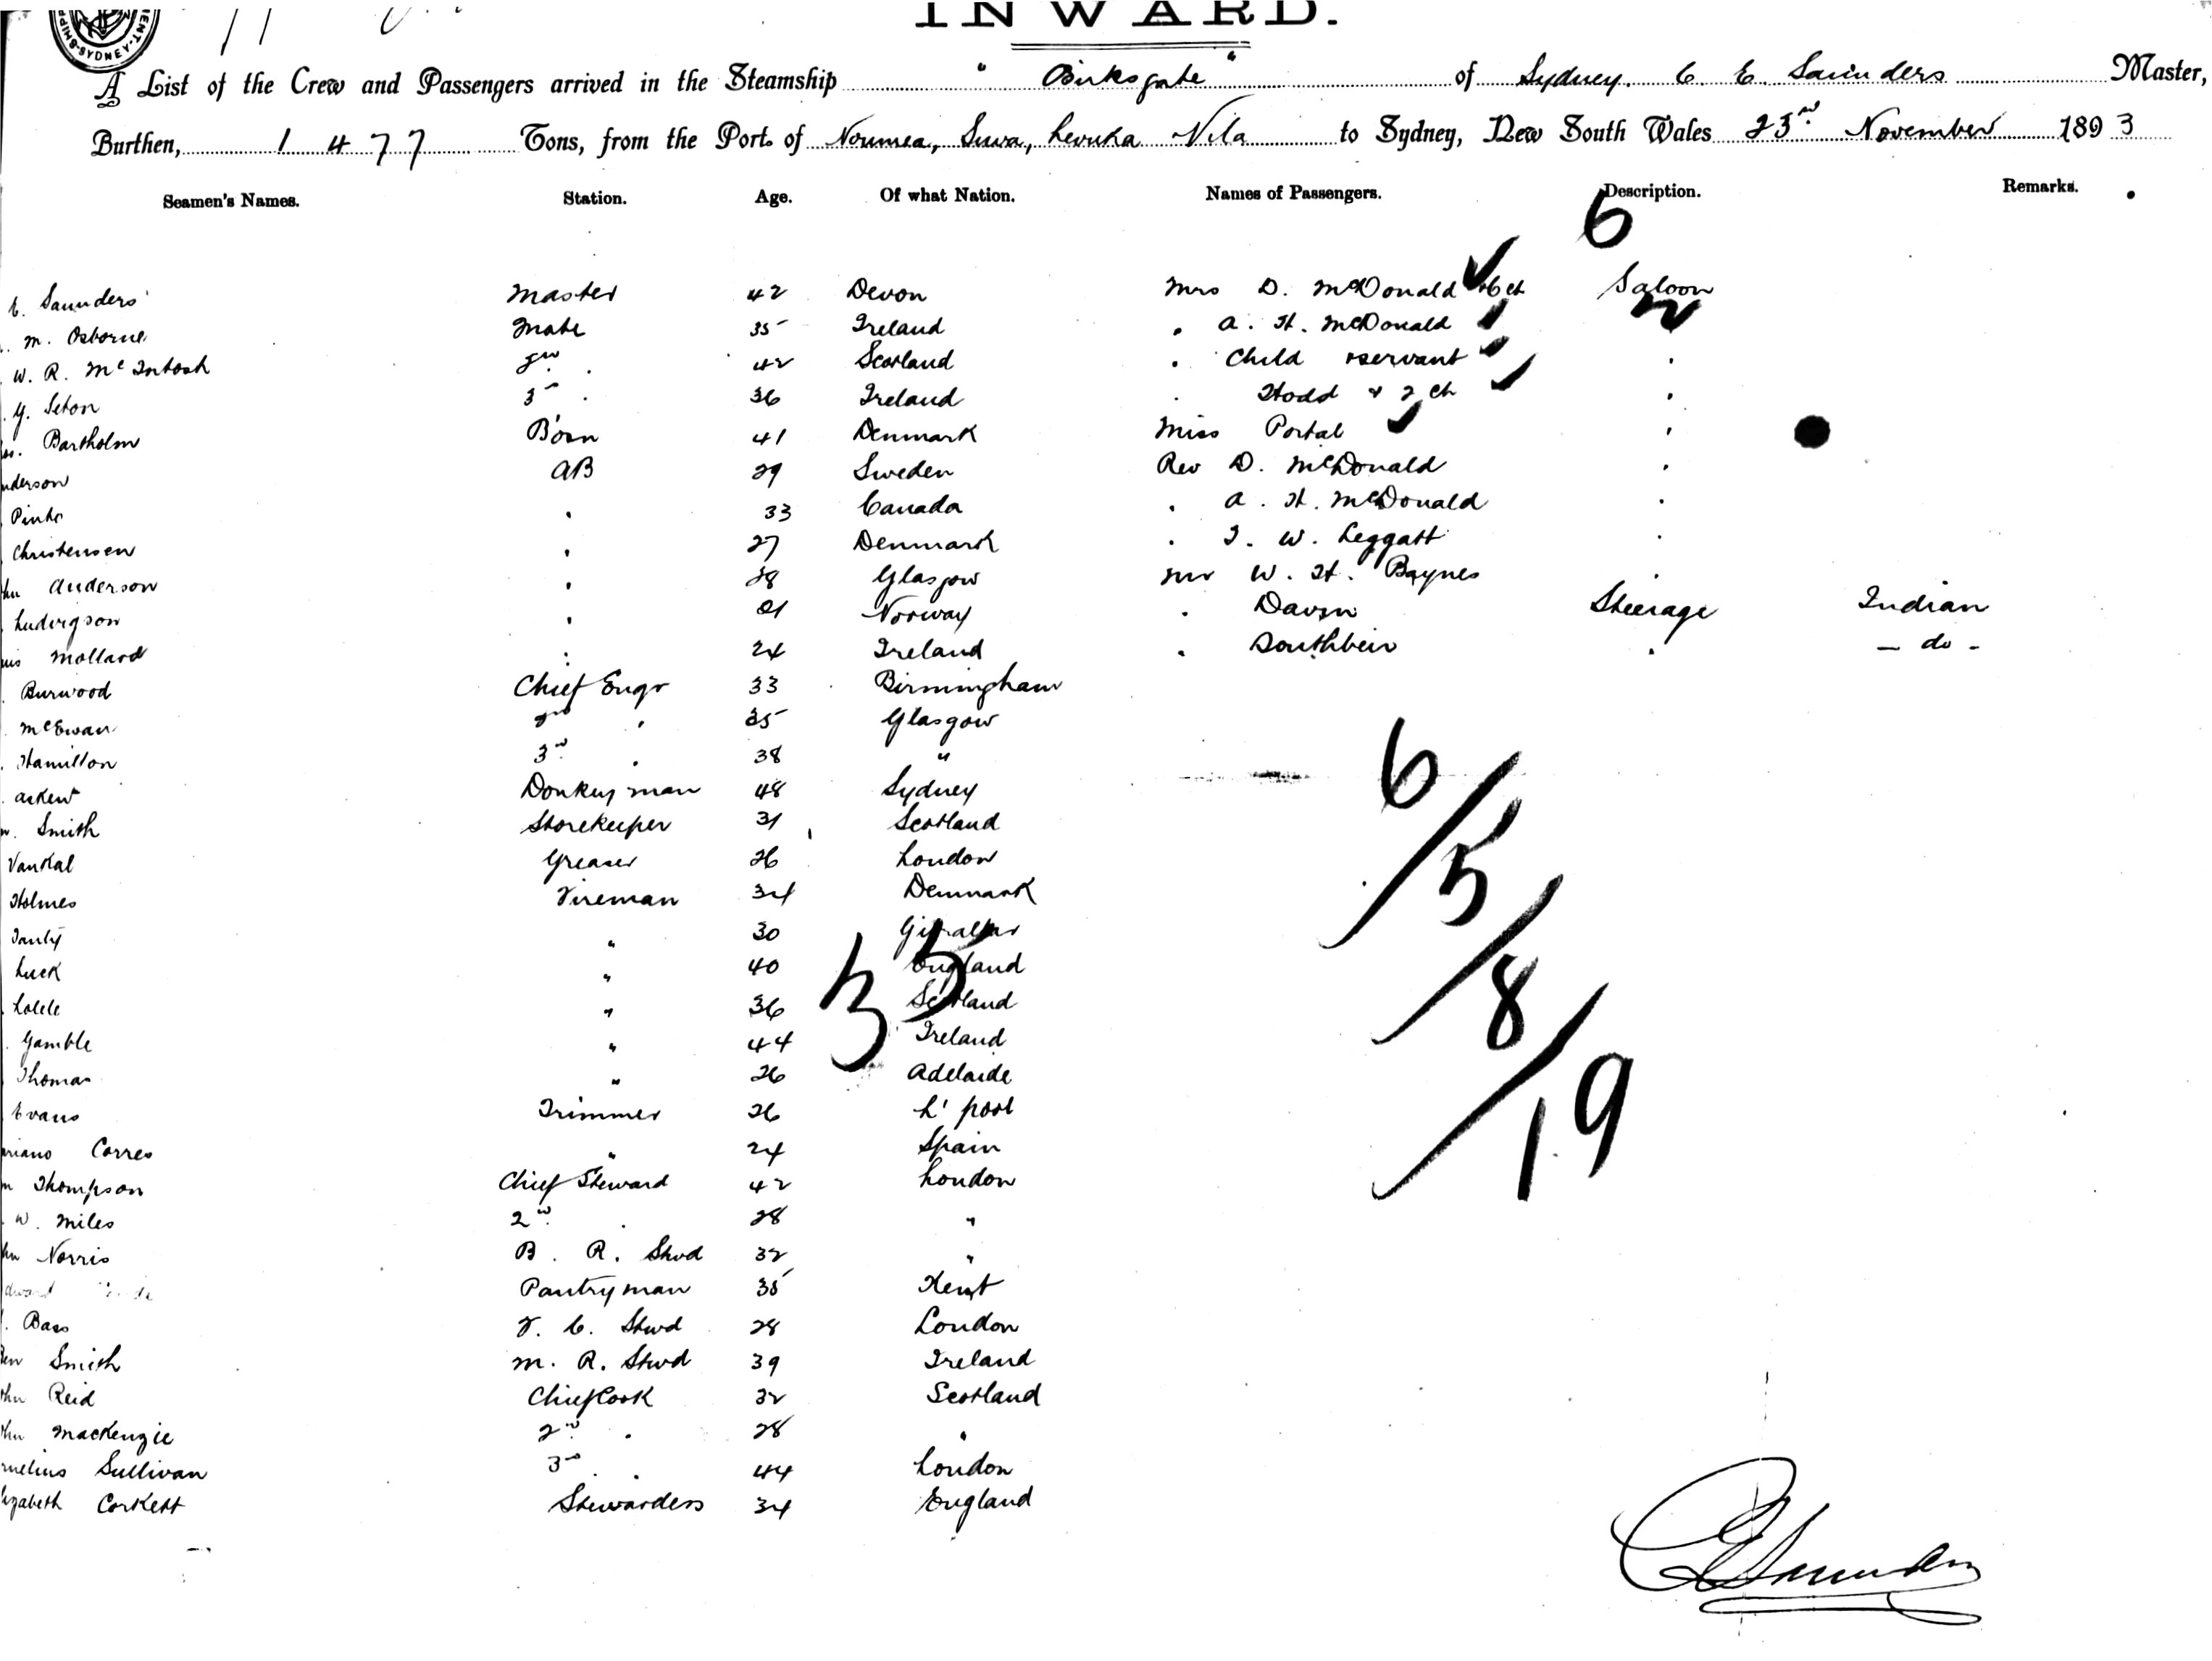 SYDNEY
INWARD.
A List of the Crew and Passengers arrived in the Steamship "Birksgate" of Sydney. C E Saunders Master,
Burthen, 1477 Tons, from the Port of Noumea, Suva, Levuka Vila to Sydney, New South Wales 23rd November 1893
Seamen's Names. Station. Age. Of what Nation. Names of Passengers. Description. Remarks.
6
E. Saunders Master 42 Devon Mrs D. McDonald 6 ch Saloon
M. Osborne Mate 35 Ireland " A. H. McDonald
W. R. McIntosh 2nd " 42 Scotland " Child & servant "
Y. Seton 3rd " 36 Ireland " Hodd & 2 ch "
Bartholm Bosn 41 Denmark Miss Portal "
nderson AB 29 Sweden Rev D. McDonald "
" 33 Canada " A. H. McDonald "
Christensen " 27 Denmark " T. W. Leggatt "
hn Anderson " 28 Glasgow Mr W. H. Baynes "
Ludvigson " 21 Norway " Steerage Indian
Mollard " 24 Ireland " " - do -
Burwood Chief Engr 33 Birmingham
McEwan 2nd " 35 Glasgow
Hamilton 3rd " 38 "
Askew Donkeyman 48 Sydney
Smith Storekeeper 31 Scotland
Greaser 26 London
Holmes Fireman 34 Denmark
" 30 Gibraltar
Luck " 40 England
" 36 Scotland
Gamble " 44 Ireland
Thomas " 26 Adelaide
Evans Trimmer 26 L'pool
ariano Correo " 24 Spain
m Thompson Chief Steward 42 London
W. Miles 2nd " 28 "
hn Norris B. R. Stwd 32 "
dward Pantryman 35 Kent
Bass F. C. Stwd 28 London
Smith M. R. Stwd 39 Ireland
ohn Reid Chief Cook 32 Scotland
ohn Mackenzie 2nd " 28 "
rnelius Sullivan 3rd " 44 London
lizabeth Corkett Stewardess 34 England
35
6/5/8/19
C E Saunders